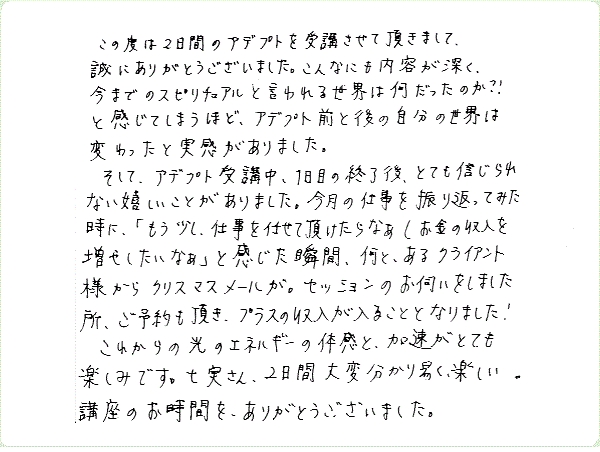 この度は2日間のアデプトを受講させて頂きまして、
誠にありがとうございました。こんなにも内容が深く、
今までのスピリチュアルと言われる世界は何だったのか?!
と感じてしまうほど、アデプト前と後の自分の世界は
変わったと実感がありました。
そして、アデプト受講中、1日目の終了後、とても信じられ
ない嬉しいことがありました。今月の仕事を振り返ってみた
時に、「もう少し、仕事を任せて頂けたらなぁ(お金の収入を
増やしたいなぁ」と感じた瞬間、何と、あるクライアント
様からクリスマスメールが。セッションのお伺いをしました
所、ご予約も頂き、プラスの収入が入ることとなりました!
これからの光のエネルギーの体感と、加速がとても
楽しみです。七実さん、2日間大変分かり易く、楽しい
講座のお時間を、ありがとうございました。